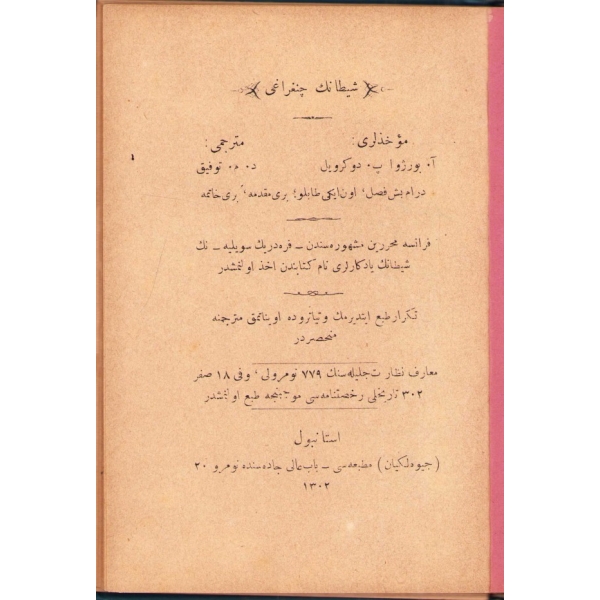 شیطانك چنغراغی
مؤخذلری: مترجمی:
آ. بورژوا پ. دوكرویل د. م. توفیق
درام بش فصل، اون ایكی طابلو؛ بری مقدمه، بری خاتمه
فرانسه محررین مشهوره سندن ــ فره دریك سویلیه ــ نك
شیطانك یادكارلری نام كتابندن اخذ اولنمشدر
تكرار طبع ایتدیرمك وتیاتروده اویناتمق مترجمنه
منحصردر
معارف نظارت جلیله سنك ٧٧٩ نومرولی، وفی ١٨ صفر
٣٠٢ تاریخلی رخصتنامه سی موجبنجه طبع اولنمشدر
استانبول
(جیوه لكیان) مطبعه سی ــ باب عالی جاده سنده نومرو ٢٠
١٣٠٢